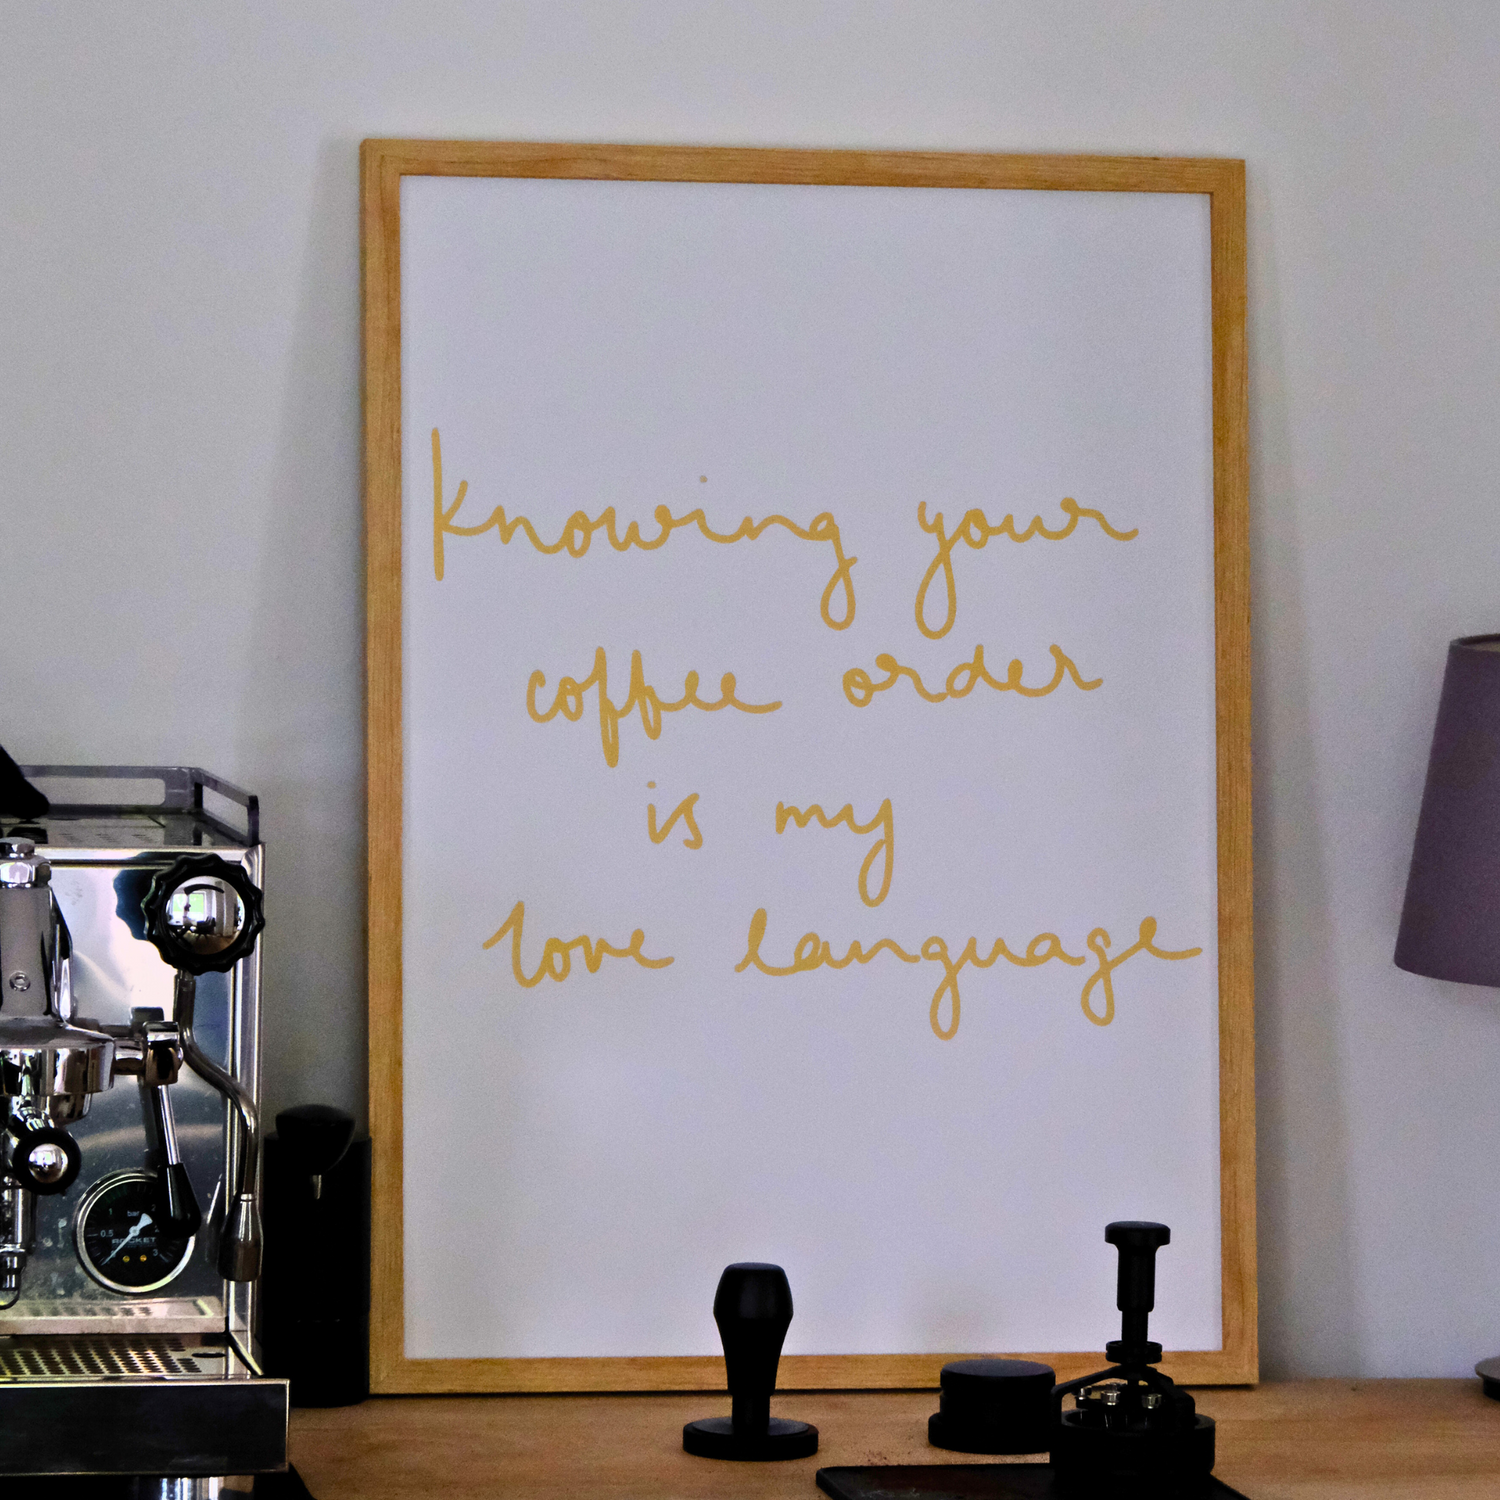 knowing your
coffee order
is my
love language
bar
0.5
ROCKET
3